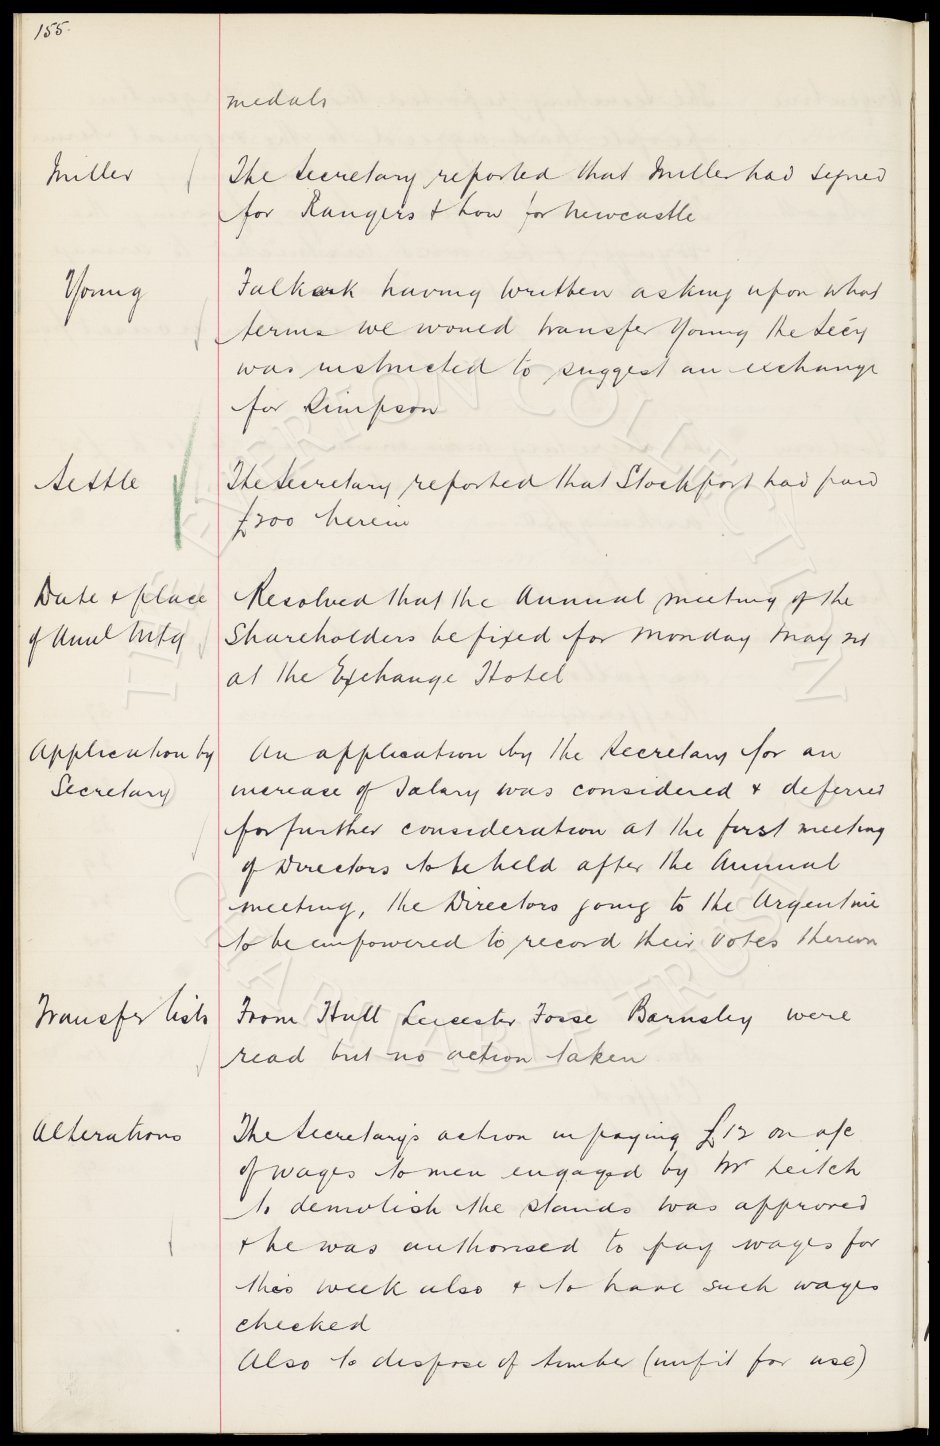 155.
medals
Miller
The Secretary reported that Miller had signed
for Rangers & how for Newcastle
Young
Falkirk having written asking upon what
terms we would transfer Young the Secy
was instructed to suggest an exchange
for Simpson
Settle
The Secretary reported that Stockport had paid
£200 herein
Date & place
of Anul Mtg
Resolved that the Annual meeting of the
Shareholders be fixed for Monday May
at the Exchange Hotel
Application by
Secretary
An application by the Secretary for an
increase of Salary was considered & deferred
for further consideration at the first meeting
of Directors to be held after the Annual
meeting, the Directors going to the Argentine
to be empowered to record their votes thereon
Transfer lists
From Hull Leicester Fosse Barnsley were
read but no action taken
Alterations
The Secretary's action in paying £12 on a/c
of wages to men engaged by Mr Leitch
to demolish the stands was approved
& he was authorised to pay wages for
this week also & to have such wages
checked
Also to dispose of timber (unfit for use)
THE EVERTON COLLECTION
CHARITABLE TRUST